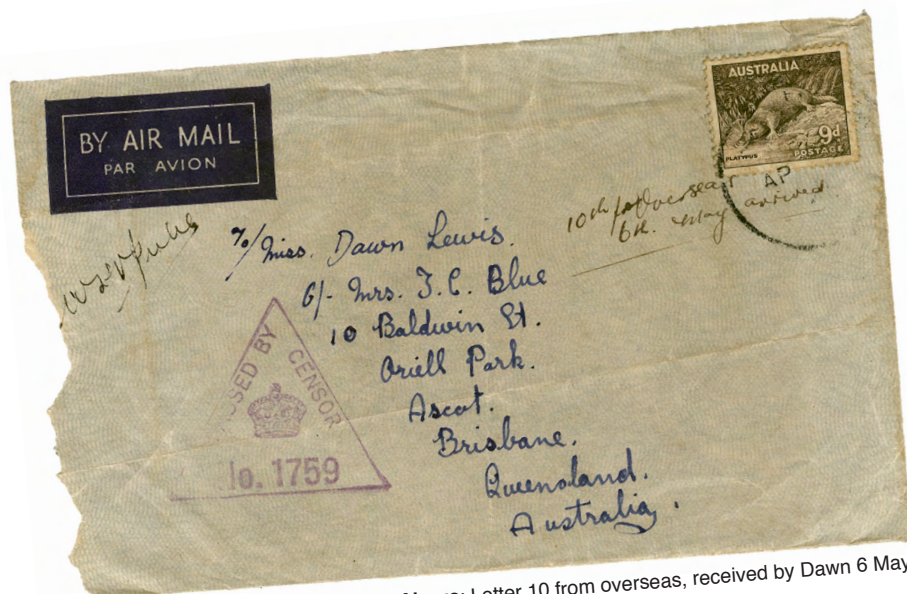 BY AIR MAIL
PAR AVION
AUSTRALIA
9d
PLATYPUS
POSTAGE
AP
10th
overseas
6th. May arrived
Miss. Dawn Lewis.
Mrs. F.C. Blue
10 Baldwin St.
Oriell Park.
Ascot.
Brisbane.
Queensland.
Australia.
SSED BY CENSOR
1759
Letter 10 from overseas, received by Dawn 6 May